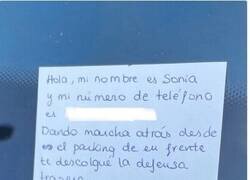 Hola, mi nombre es Sonia
y mi número de teléfono
es
Dando marcha atrás desde
el parking de en frente
te descolgué la defensa